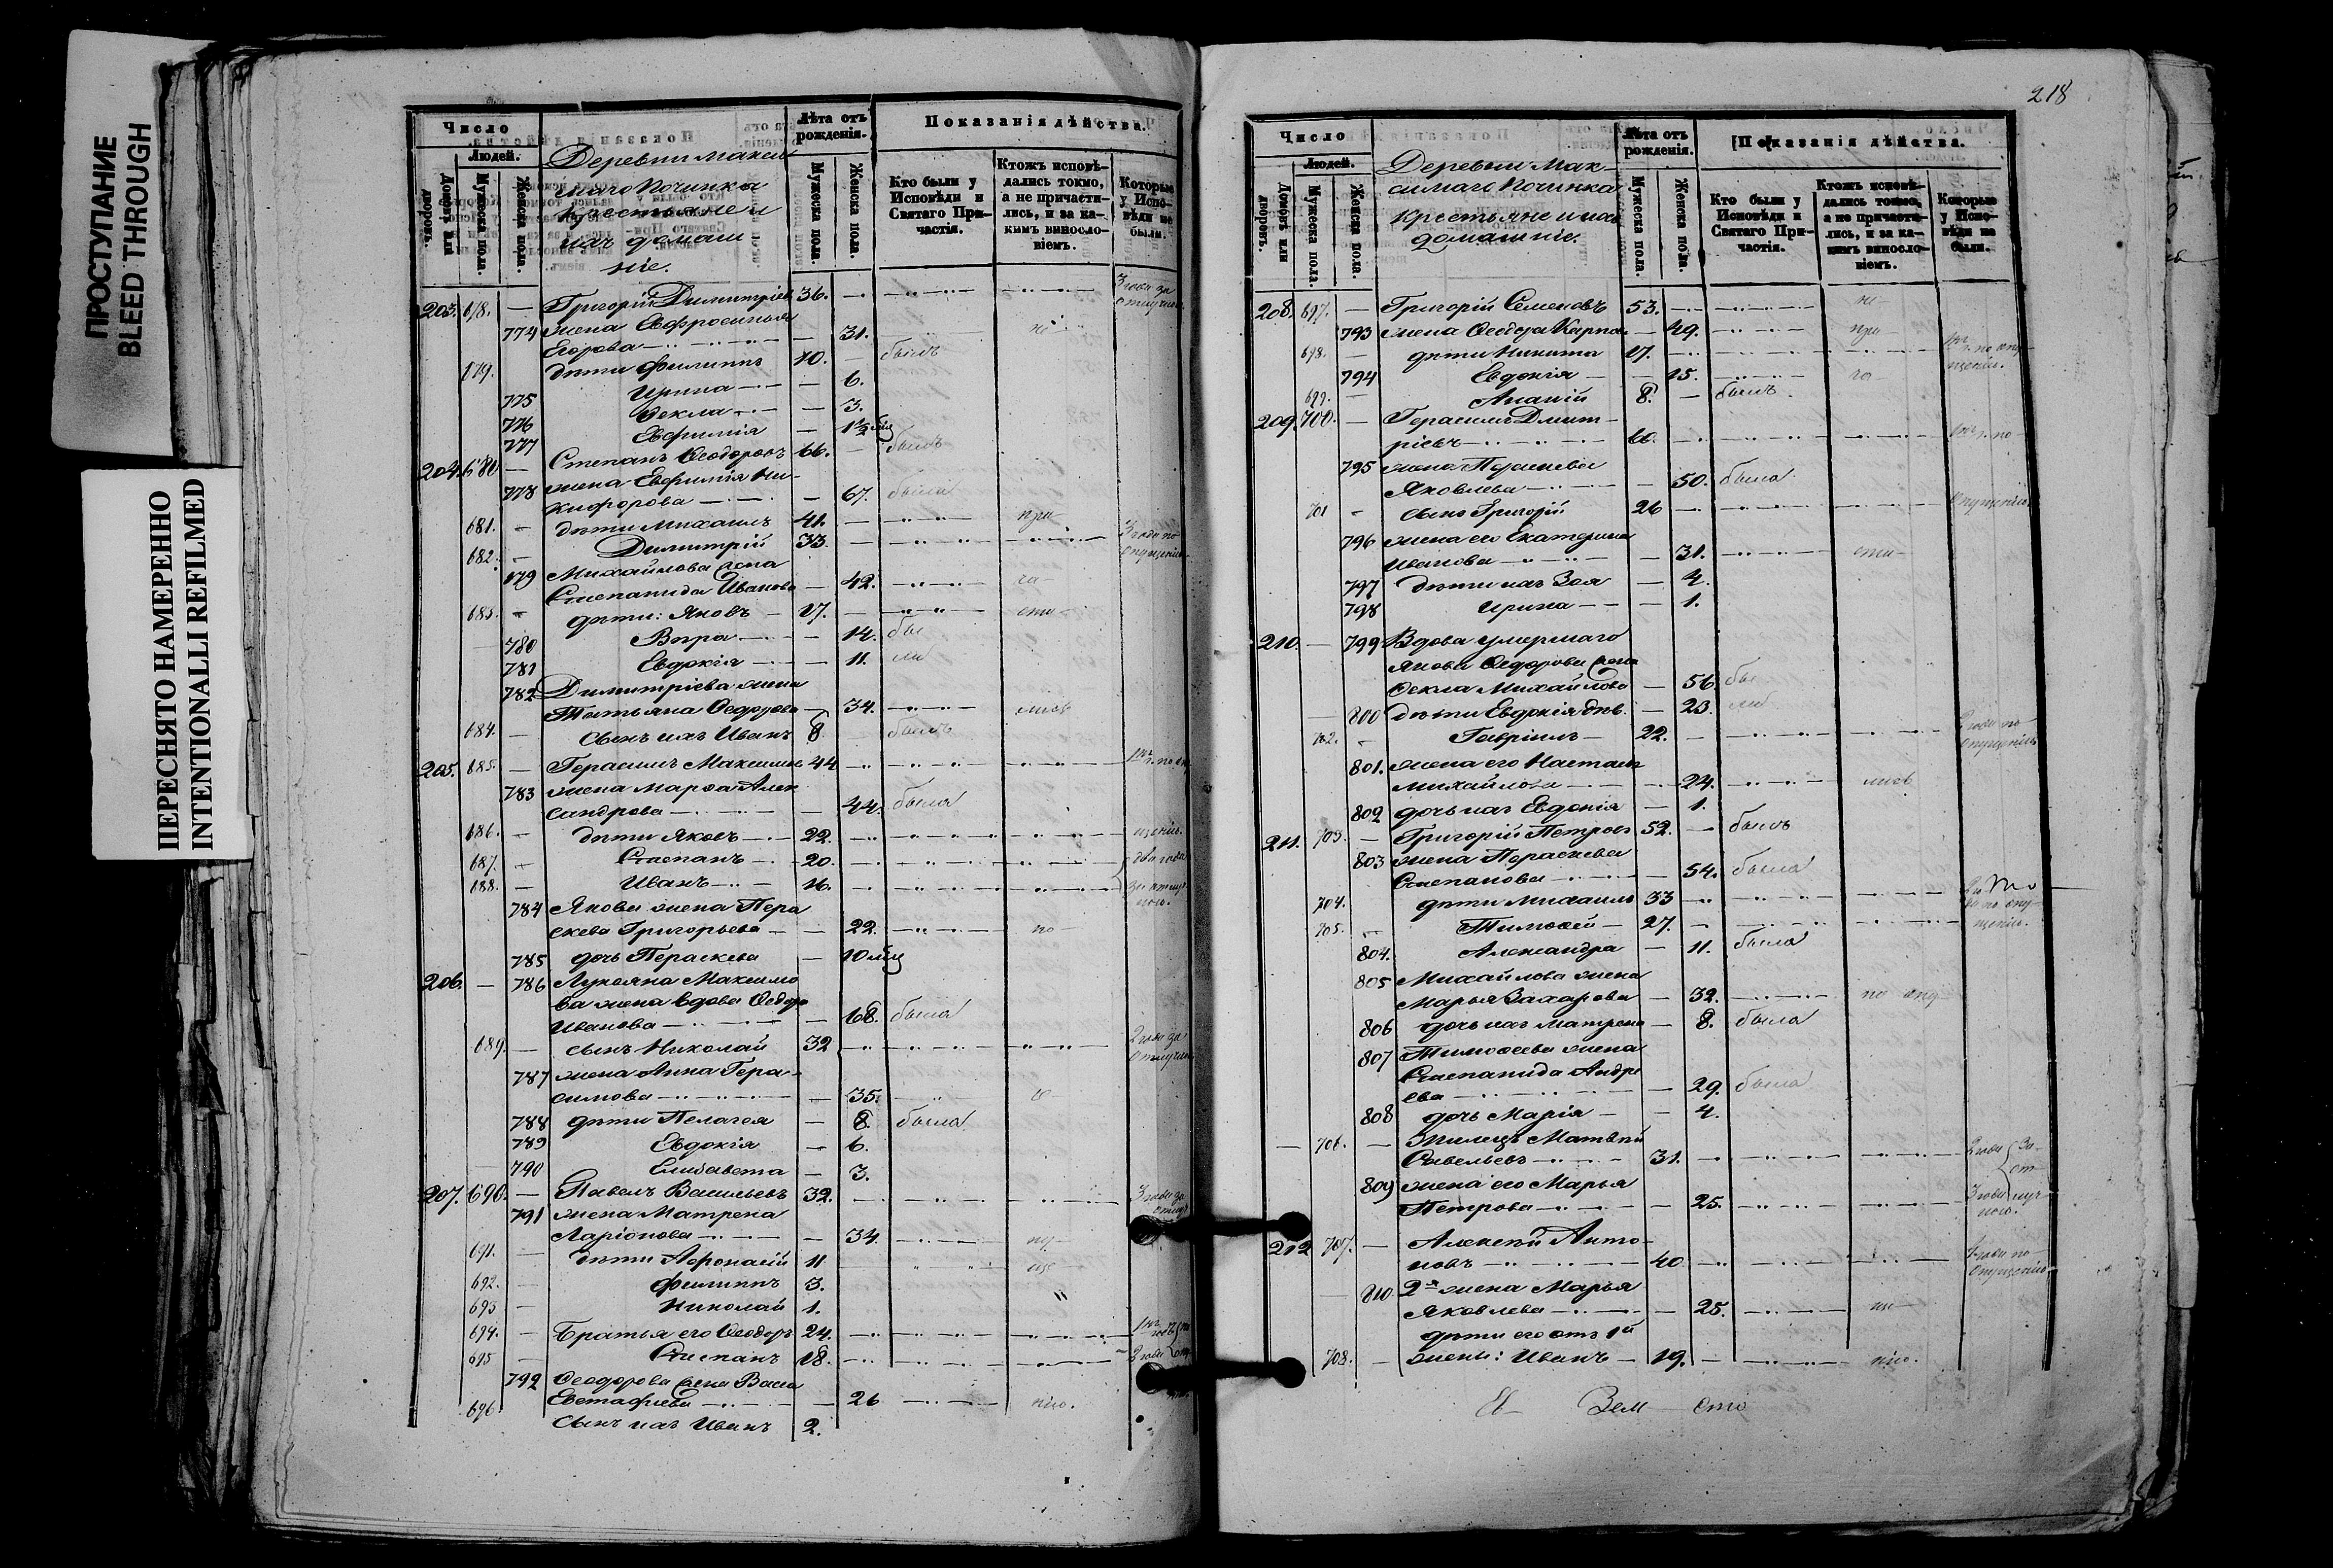 ПРОСТУПАНИЕ
BLEED THROUGH
ПЕРЕСНЯТО НАМЕРЕННО
INTENTIONALLI REFILMED
Число
Людей.
Домовъ или дворовъ.
Мужеска пола.
Женска пола.
Деревни Макси
маго Починка
крестьяне и
ихъ домаш
ніе.
Лѣта отъ рожденія.
Мужеска пола.
Женска пола.
Показанія дѣйства.
Кто были у Исповѣди и Святаго Причастія.
Ктожъ исповѣдались токмо, а не причастились, и за какимъ винословіемъ.
Которые у Исповѣди не были.
203. 678. — Григорій Димитріевъ 36. 3 года за отлучкою
774 жена Евфросинья
Егорова — 31.
679. дѣти Филиппъ 10. — былъ
775 Ирина — 6.
776 Ѳекла — 3.
777 Евфимія — 1/2
204. 680 — Степанъ Ѳеодоровъ 66. — былъ
778 жена Евфимія Ни-
кифорова — 67. была
681. — дѣти Михаилъ 41. — при-
682. — Димитрій 33. 3 года по опущенію
779 Михайлова жена
Степанида Иванова — 42. ча-
683. — дѣти: Яковъ — 17. — сти-
780 Вѣра — 14. бы
781 Евдокія — 11. ли
782 Димитріева жена
Татьяна Ѳедорова — 34. лись
684. — сынъ ихъ Иванъ 8. былъ
205. 685. — Герасимъ Максимовъ 44
783 жена Марѳа Алек
сандрова — 44. была
686. — дѣти Яковъ — 22. — щенію.
687. — Степанъ — 20. — два года
688. — Иванъ — 16. — за отлуч
кою.
784 Якова жена Пера
скева Григорьева — 22. — по
785 дочь Параскева — 10 м
206. — 786 Лукояна Максимо
ва жена вдова Ѳедора
Иванова — 68. была
689. — сынъ Николай 32 2 года за отлучкою
787 жена Анна Гера-
симова — 35.
788 дѣти Пелагея — 8. была
789 Евдокія — 6.
790 Елисавета — 3.
207. 690. — Павелъ Васильевъ 32. 3 года за отлуч
791 жена Матрена
Ларіонова — 34.
691. — дѣти Аѳонасій 11
692. — Филиппъ 3.
693 — Николай 1.
694. — Братья его Ѳеодоръ 24.
695 — Степанъ 18. 2 года
792 Ѳеодорова жена Васса
Евстафіева — 26 — нію.
696 сынъ ихъ Иванъ 2.
218
Число
Людей.
Домовъ или дворовъ.
Мужеска пола.
Женска пола.
Деревни Мак-
симаго Починка
крестьяне и ихъ
домашніе.
Лѣта отъ рожденія.
Мужеска пола.
Женска пола.
Показанія дѣйства.
Кто были у Исповѣди и Святаго Причастія.
Ктожъ исповѣдались токмо, а не причастились, и за какимъ винословіемъ.
Которые у Исповѣди не были.
208. 697. — Григорій Семеновъ 53. — не-
793 жена Ѳеодора Карпова — 49. при-
698. — дѣти Никита 17. по опу-
щенію.
794 Евдокія — 15. ча-
699. — Ананій 8. — былъ
209. 700. — Герасимъ Дмит-
ріевъ — 60. по-
795 жена Параскева
Яковлева — 50. была
701 — сынъ Григорій 26 опущенію
796 жена его Екатерина
Иванова — 31. сти-
797 дѣти ихъ Зоя — 4.
798 Ирина — 1.
210. — 799 Вдова умершаго
Якова Ѳедорова жена
Ѳекла Михайлова — 56. бы
800 дѣти Евдокія дѣв. — 23. ли
702. — Гавріилъ — 22. 2 года по-
опущенію
801. жена его Настасья
Михайлова — 24. лись
802 дочь ихъ Евдокія — 1.
211. 703. — Григорій Петровъ 52. — былъ
803 жена Параскева
Степанова — 54. была
704. дѣти Михаилъ 33
705. — Тимоѳей — 27. щенію.
804. Александра — 11. была
805 Михайлова жена
Марья Захарова — 32. по опу
806 дочь ихъ Матрена — 8. была
807 Тимоѳеева жена
Степанида Андре
ева — 29. была
808 дочь Марія — 4.
— 706. — Жилецъ Матвѣй
Савельевъ — 31. 2 года За-
809 жена его Марья
Петрова — 25. 3 года отлуч-
кою.
212 707. — Алексѣй Анто-
новъ — 40 года по-
опущенію
810. 2я жена Марья
Яковлева — 25.
дѣти его отъ 1й
708. — жены: Иванъ — 19. — нію.
Зем